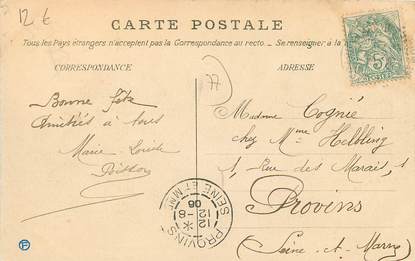 12 €
CARTE POSTALE
Tous les Pays étrangers n'acceptent pas la Correspondance au recto. - Se renseigner à la
CORRESPONDANCE
ADRESSE
77
5c
POSTES
Bonne fête
Amitiés à tous
Marie Louise
Madame Cognié
chez Mme Helbling
1, Rue des Marais, 1
Provins
(Seine-et-Marne
PROVINS
SEINE ET MNE
12
12-8
06
F